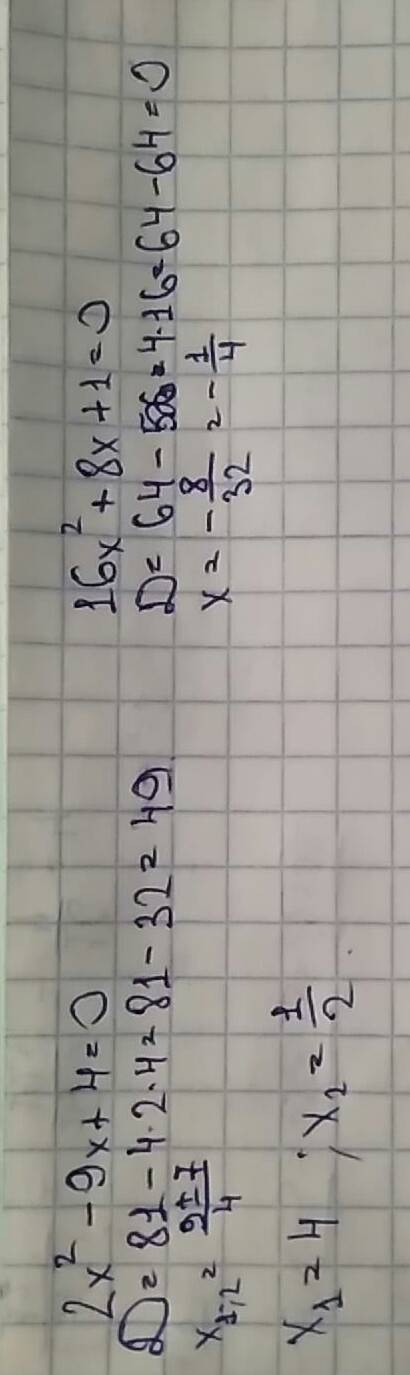 2x² - 9x + 4 = 0
D = 81 - 4·2·4 = 81 - 32 = 49.
x₁,₂ = (9±7)/4
x₁ = 4 ; x₂ = 1/2.
16x² + 8x + 1 = 0
D = 64 - 4·16 = 64 - 64 = 0
x = - 8/32 = - 1/4